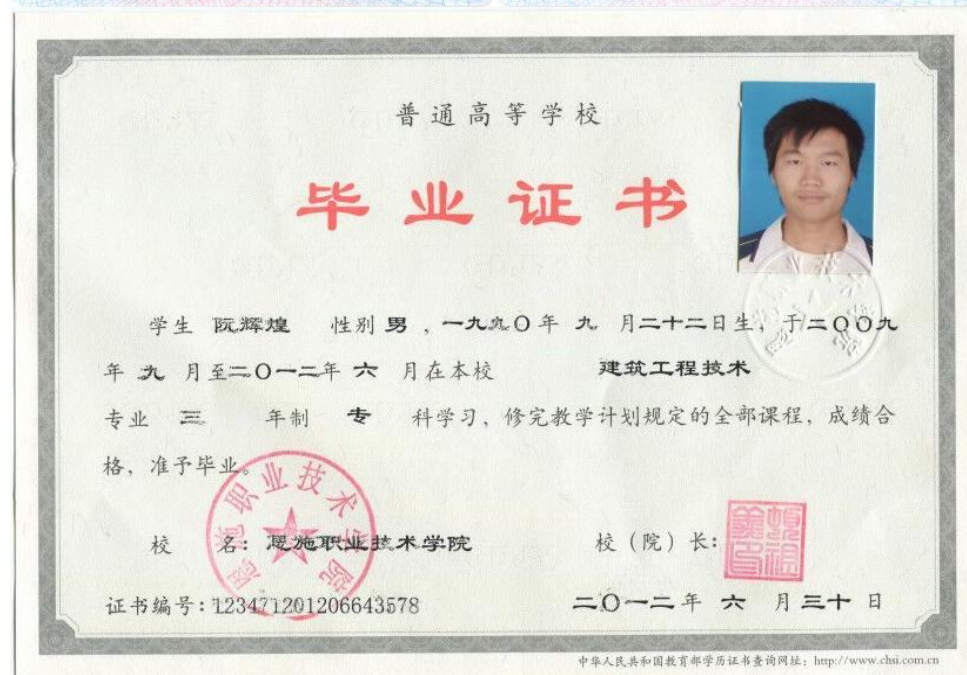 普通高等学校
毕业证书
学生 阮辉煌 性别 男 ，一九九〇年 九 月二十二日生，于二〇〇九
年 九 月至二〇一二年 六 月在本校 建筑工程技术
专业 三 年制 专 科学习，修完教学计划规定的全部课程，成绩合
格，准予毕业。
恩施职业技术学院
校 名：恩施职业技术学院 校（院）长：
证书编号：123471201206643578 二〇一二年 六 月三十日
中华人民共和国教育部学历证书查询网址：http://www.chsi.com.cn